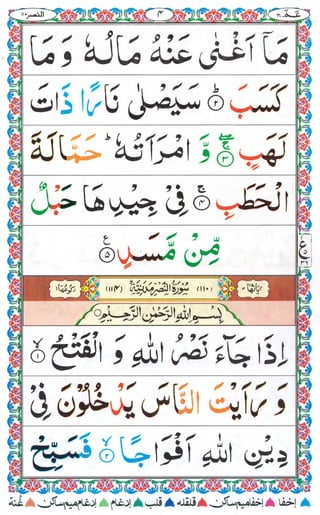 النصر ١١٠ ٤ عم ٣٠
مَاۤ اَغْنٰى عَنْهُ مَالُهٗ وَ مَا
كَسَبَؕ‏ ﴿۲﴾ سَیَصْلٰى نَارًا ذَاتَ
لَهَبٍۚۖ ﴿۳﴾ وَّ امْرَاَتُهٗؕ حَمَّالَةَ
الْحَطَبِۚ ﴿۴﴾ فِیْ جِیْدِهَا حَبْلٌ
مِّنْ مَّسَدٍ ﴿۵﴾
اٰیَاتُهَا ٣ (١١٠) سُوْرَةُ النَّصْرِ مَدَنِیَّةٌ (١١٤) رُكُوْعُهَا ١
بِسْمِ اللّٰهِ الرَّحْمٰنِ الرَّحِیْمِ
اِذَا جَآءَ نَصْرُ اللّٰهِ وَ الْفَتْحُۙ ﴿۱﴾
وَ رَاَیْتَ النَّاسَ یَدْخُلُوْنَ فِیْ
دِیْنِ اللّٰهِ اَفْوَاجًاۙ ﴿۲﴾ فَسَبِّحْ
اخفا اخفامیم ساکن قلقله قلب ادغام ادغام میم ساکن غنه